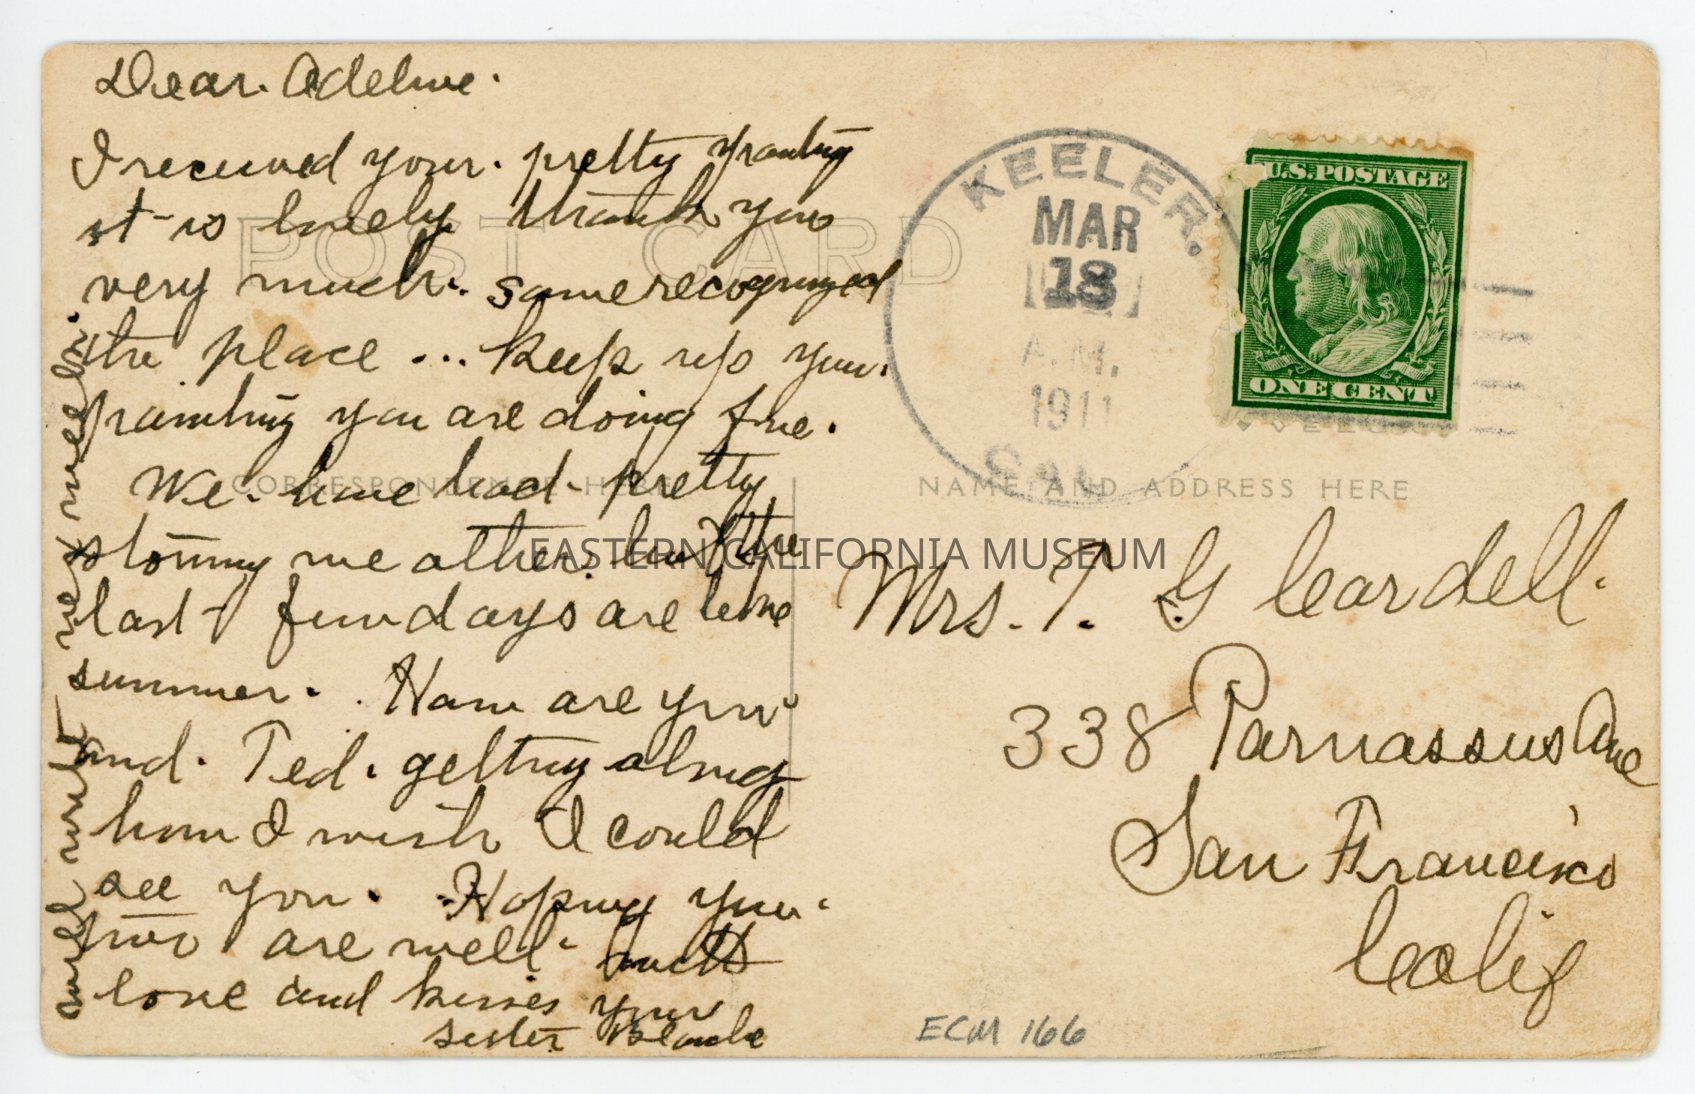 Dear. Adeline.
I received your. pretty painting
it is lovely thank you
very much. some recognized
the place ... Keep up your.
painting you are doing fine.
We. have had. pretty
stormy weather. but the
last few days are like
summer. How are you
and. Ted. getting along
how I wish I could
see you. Hoping you.
two are well. with
love and kisses your
sister Blanche
will write next week.
POST CARD
CORRESPONDENCE HERE
NAME AND ADDRESS HERE
KEELER.
MAR
18
A.M.
1911
CAL.
U.S. POSTAGE
ONE CENT
Mrs. T. G Cardell.
338 Parnassus Ave
San Francisco
Calif
ECM 166
EASTERN CALIFORNIA MUSEUM